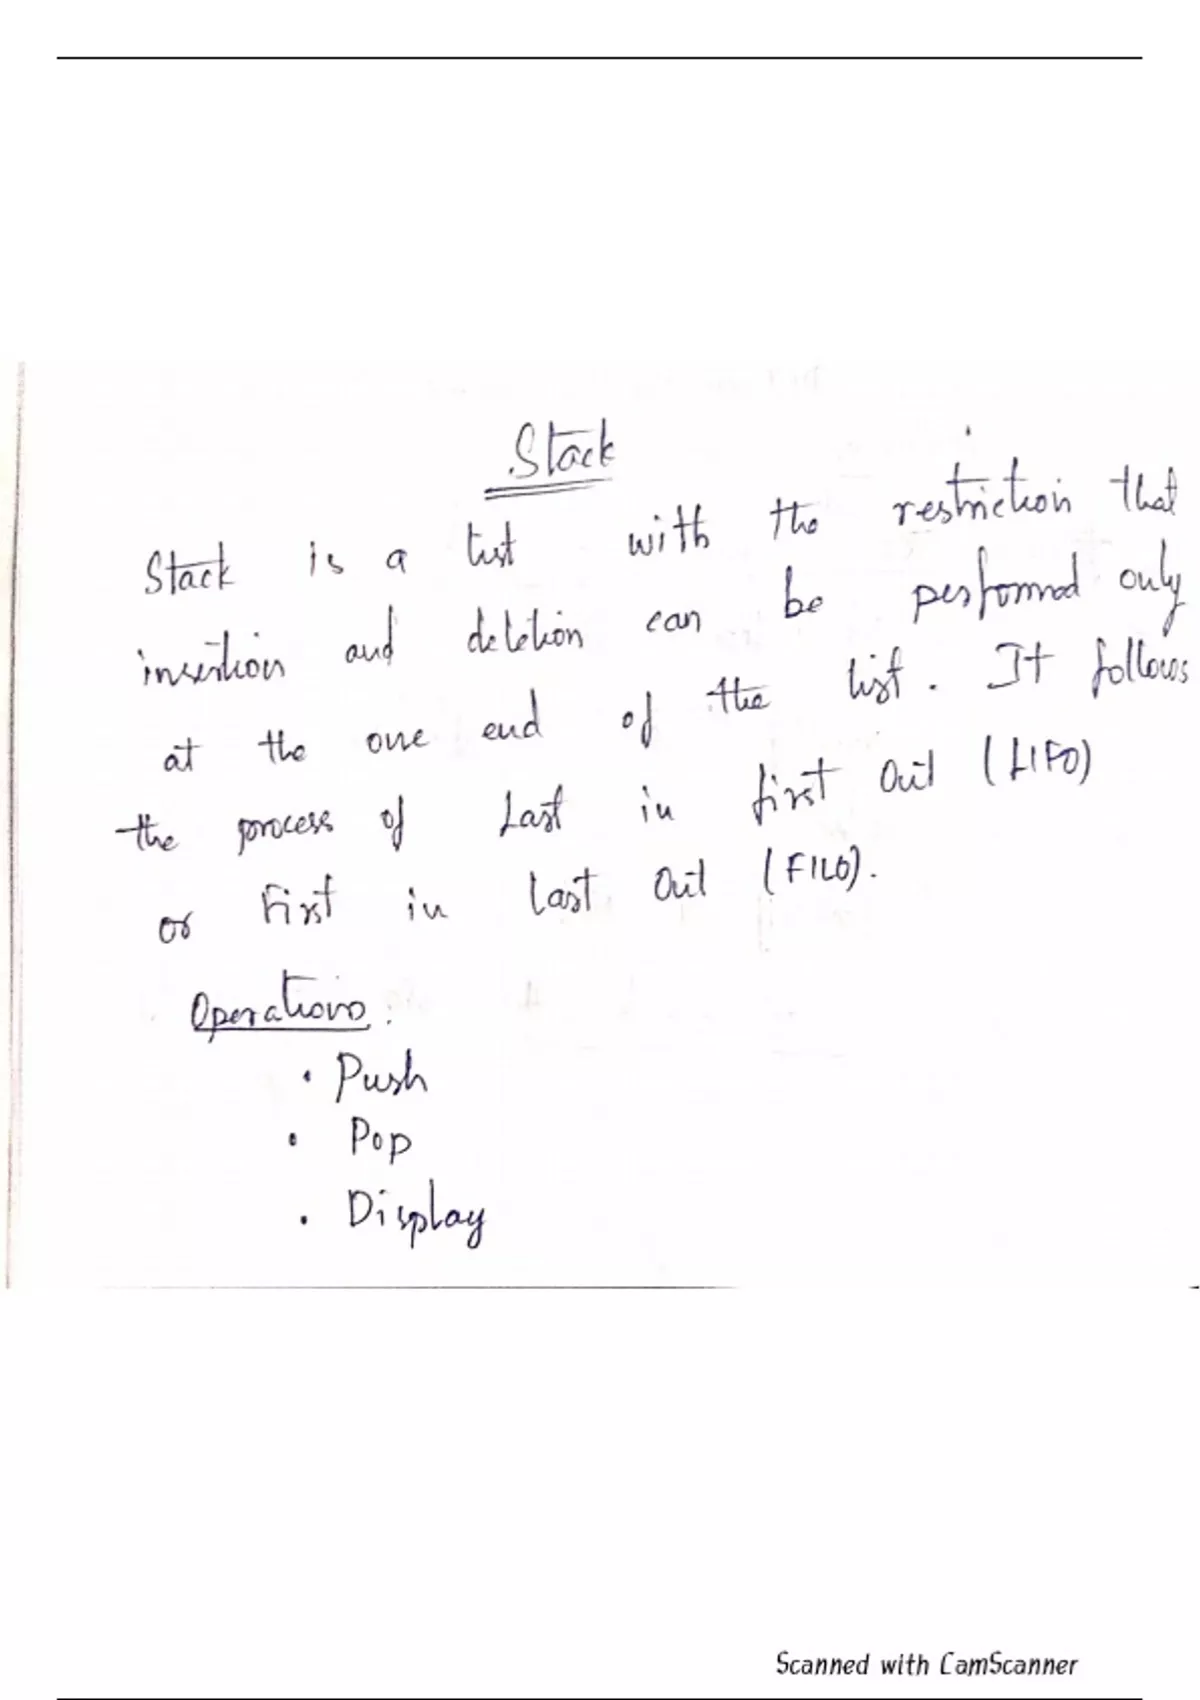 Stack
Stack is a list with the restriction that
insertion and deletion can be performed only
at the one end of the list. It follows
the process of Last in first Out (LIFO)
or First in last Out (FILO).
Operations:
• Push
• Pop
• Display
Scanned with CamScanner